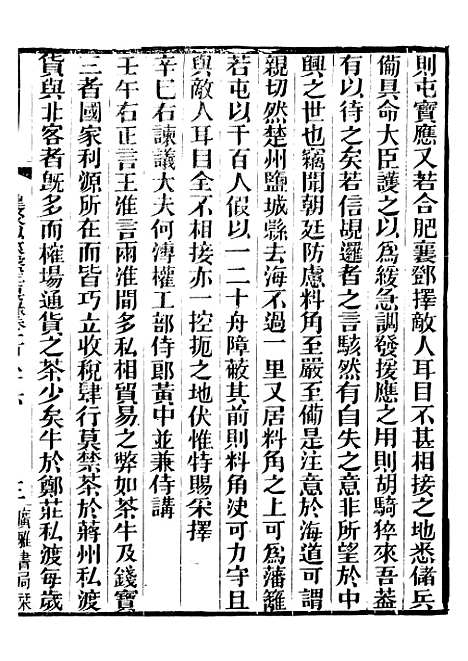 則屯寶應又若合肥襄鄧擇敵人耳目不甚相接之地悉儲兵
備具命大臣護之以爲緩急調發援應之用則胡騎猝來吾蓋
有以待之矣若信覘邏者之言駭然有自失之意非所望於中
興之世也竊聞朝廷防慮料角至嚴至備是注意於海道可謂
親切然楚州鹽城縣去海不過一里又居料角之上可爲藩籬
若屯以千百人假以一二十舟障蔽其前則料角決可力守且
與敵人耳目全不相接亦一控扼之地伏惟特賜采擇
辛巳右諫議大夫何溥權工部侍郎黃中並兼侍講
壬午右正言王淮言兩淮間多私相貿易之弊如茶牛及錢寶
三者國家利源所在而皆巧立收稅肆行莫禁茶於蔣州私渡
貨與北客者旣多而榷場通貨之茶少矣牛於鄭莊私渡每歲
廣雅書局栞